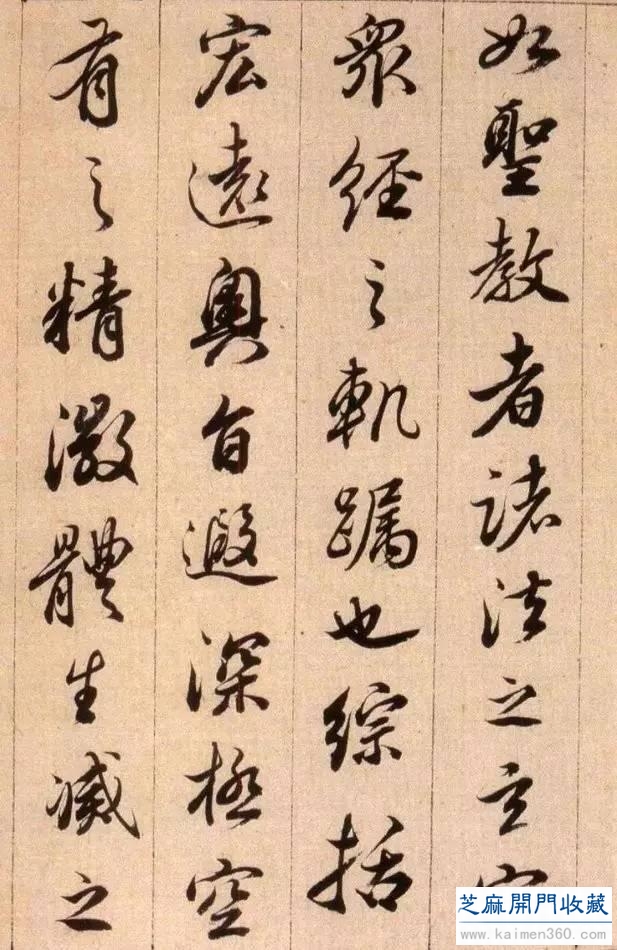 如聖教者諸法之玄
衆經之軌躅也綜括
宏遠奧旨遐深極空
有之精微體生滅之
芝麻開門收藏
www.kaimen360.com